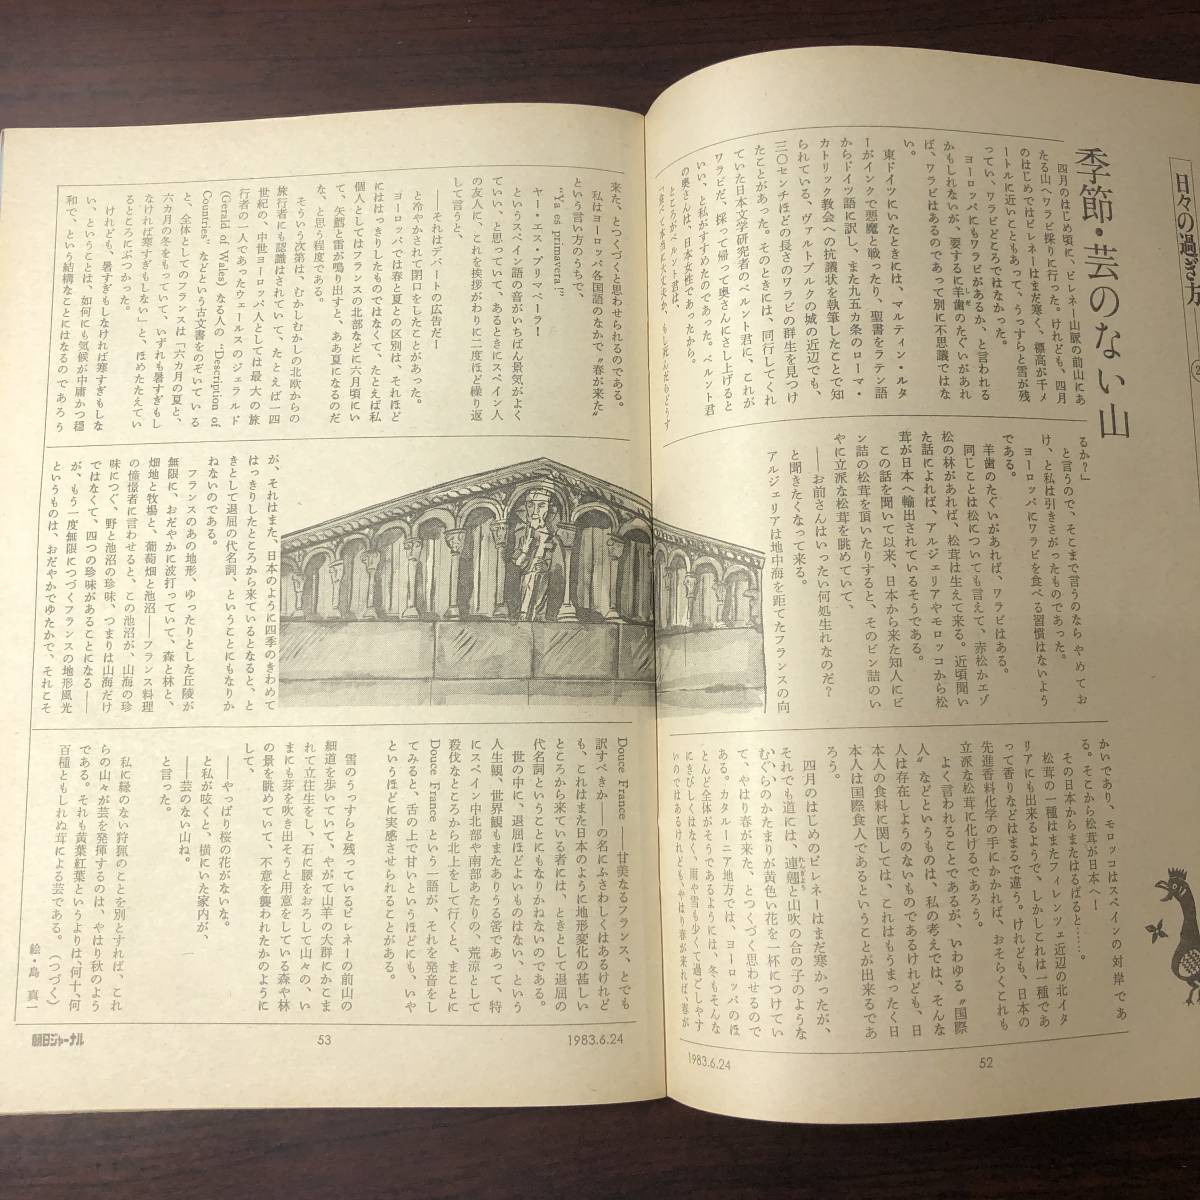 日々の過ぎ方
季節・芸のない山
四月のはじめ頃に、ピレネー山脈の前山にあ
たる山へワラビ採りに行った。けれども、四月
のはじめではピレネーはまだ寒く、標高が千メ
ートルに近いこともあって、うっすらと雪が残
っていて、ワラビどころではなかった。
ヨーロッパにもワラビがあるか、と言われる
かもしれないが、要するに羊歯のたぐいがあれ
ば、ワラビはあるのであって別に不思議ではな
い。
東ドイツにいたときには、マルティン・ルタ
ーがインクで悪魔と戦ったり、聖書をラテン語
からドイツ語に訳し、また九五カ条のローマ・
カトリック教会への抗議状を執筆したことで知
られている、ヴァルトブルクの城の近辺でも、
三〇センチほどの長さのワラビの群生を見つけ
たことがあった。そのときには、同行してくれ
ていた日本文学研究者のベルント君に、これが
ワラビだ、採って帰って奥さんにさし上げると
いい、と私がすすめたのであった。ベルント君
の奥さんは、日本女性であったから。
ところがベルント君は、
るか?」
と言うので、そこまで言うのならやめてお
け、と私は引きさがったものであった。
ヨーロッパにワラビを食べる習慣はないよう
である。
羊歯のたぐいがあれば、ワラビはある。
同じことは松についても言えて、赤松かエゾ
松の林があれば、松茸は生えて来る。近頃聞い
た話によれば、アルジェリアやモロッコから松
茸が日本へ輸出されているそうである。
この話を聞いて以来、日本から来た知人にビ
ン詰の松茸を頂いたりすると、そのビン詰のい
やに立派な松茸を眺めていて、
――お前さんはいったい何処生れなのだ?
と聞きたくなって来る。
アルジェリアは地中海を距てたフランスの向
かいであり、モロッコはスペインの対岸であ
る。そこから松茸が日本へ!
その日本からまたはるばると……。
松茸の一種はまたフィレンツェ近辺の北イタ
リアにも出来るようで、しかしこれは一種であ
って香りなどはまるで違う。けれども、日本の
先進香料化学の手にかかれば、おそらくこれも
立派な松茸に化けるであろう。
よく言われることであるが、いわゆる〝国際
人〟などというものは、私の考えでは、そんな
人は存在しようのないものであるけれども、日
本人の食料に関しては、これはもうまったく日
本人は国際食人であるということが出来るであ
ろう。
四月のはじめのピレネーはまだ寒かったが、
それでも道には、連翹と山吹の合の子のような
むぐらのかたまりが黄色い花を一杯につけてい
て、やはり春が来た、とつくづく思わせるので
ある。カタルーニア地方では、ヨーロッパのほ
とんど全体がそうであるようには、冬もそんな
にきびしくはなく、雨や雪も少くて過ごしやす
いのではあるけれども、やはり春が来れば、春が
1983.6.24
52
来た、とつくづくと思わせられるのである。
私はヨーロッパ各国語のなかで〝春が来た〟
という言い方のうちで、
"Ya es primavera!"
ヤー・エス・プリマベーラ!
というスペイン語の音がいちばん景気がよく
ていい、と思っていて、あるときにスペイン人
の友人に、これを挨拶がわりに二度ほど繰り返
して言うと、
――それはデパートの広告だー
と冷やかされて閉口をしたことがあった。
ヨーロッパでは春と夏との区別は、それほど
にははっきりしたものではなくて、たとえば私
個人としてはフランスの北部などに六月頃にい
て、矢鱈と雷が鳴り出すと、ああ夏になるのだ
な、と思う程度である。
そういう次第は、むかしむかしの北欧からの
旅行者にも認識はされていて、たとえば一四
世紀の、中世ヨーロッパ人としては最大の旅
行者の一人であったウェールスのジェラルド
(Gerald of Wales) なる人の "Description of
Countries," などという古文書をのぞいている
と、全体としてのフランスは「六カ月の夏と、
六カ月の冬をもっていて、いずれも暑すぎもし
なければ寒すぎもしない」と、ほめたたえてい
るところにぶつかった。
けれども、暑すぎもしなければ寒すぎもしな
い、ということは、如何にも気候が中庸かつ穏
和で、という結構なことにはなるのであろう
が、それはまた、日本のように四季のきわめて
はっきりしたところから来ているとなると、と
きとして退屈の代名詞、ということにもなりか
ねないのである。
フランスのあの地形、ゆったりとした丘陵が
無限に、おだやかに波打っていて、森と林と、
畑地と牧場と、葡萄畑と池沼――フランス料理
の憧憬者に言わせると、この池沼が、山海の珍
味につぐ、野と池沼の珍味、つまりは山海だけ
ではなくて、四つの珍味があることになる――
が、もう一度無限につづくフランスの地形風光
というものは、おだやかでゆたかで、それこそ
Douce France――甘美なるフランス、とでも
訳すべきか――の名にふさわしくはあるけれど
も、これはまた日本のように地形変化の甚しい
ところから来ている者には、ときとして退屈の
代名詞ということにもなりかねないのである。
世の中に、退屈ほどよいものはない、という
人生観、世界観もまたありうる筈であって、特
にスペイン中北部や南部あたりの、荒涼として
殺伐なところから北上をして行くと、まことに
Douce France という一語が、それを発音をし
てみると、舌の上で甘いというほどにも、いや
というほどに実感させられることがある。
雪のうっすらと残っているピレネーの前山の
細道を歩いていて、やがて山羊の大群にかこま
れて立往生をし、石に腰をおろして山々の、い
まにも芽を吹き出そうと用意をしている森や林
の景を眺めていて、不意を襲われたかのように
して、
――やっぱり桜の花がないな。
と私が呟くと、横にいた家内が、
――芸のない山ね。
と言った。
私に縁のない狩猟のことを別とすれば、これ
らの山々が芸を発揮するのは、やはり秋のよう
である。それも黄葉紅葉というよりは、何十、何
百種ともしれぬ茸による芸である。(つづく)
絵・島 真一
朝日ジャーナル
53
1983.6.24